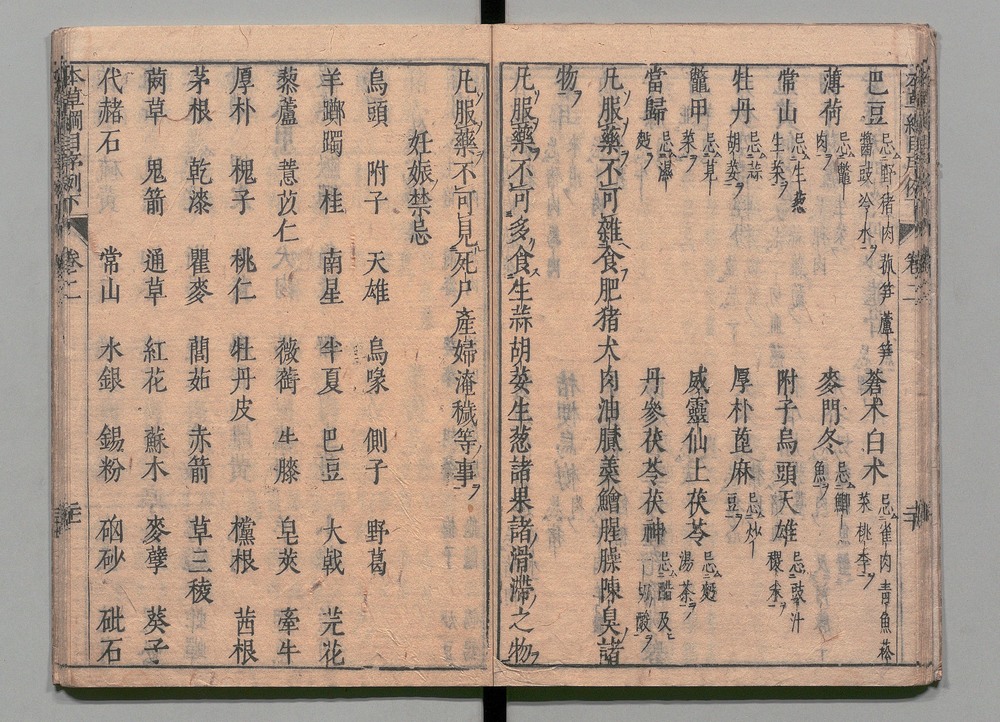 巴豆 忌野猪肉菰笋蘆笋醬豉冷水 蒼朮白朮 忌雀肉青魚菘菜桃李
薄荷 忌鼈肉 麥門冬 忌鯽魚
常山 忌生葱生菜 附子烏頭天雄 忌豉汁稷米
牡丹 忌蒜胡荽 厚朴蓖麻 忌炒豆
鼈甲 忌莧菜 威靈仙土茯苓 忌麪湯茶
當歸 忌濕麪 丹參茯苓茯神 忌醋及一切酸
凡服藥不可雜食肥猪犬肉油膩羹鱠腥臊陳臭諸
物
凡服藥不可多食生蒜胡荽生葱諸果諸滑滯之物
凡服藥不可見死尸產婦淹穢等事
妊娠禁忌
烏頭 附子 天雄 烏喙 側子 野葛
羊躑躅 桂 南星 半夏 巴豆 大戟 芫花
藜蘆 薏苡仁 薇蘅 牛膝 皂莢 牽牛
厚朴 槐子 桃仁 牡丹皮 欓根 茜根
茅根 乾漆 瞿麥 䕡茹 赤箭 草三稜
䒽草 鬼箭 通草 紅花 蘇木 麥孽 葵子
代赭石 常山 水銀 錫粉 硇砂 砒石
本草綱目序例下 卷之二